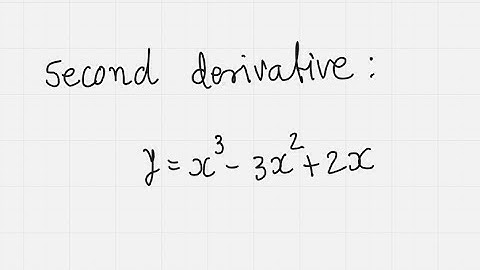 second derivative :
y = x³ - 3x² + 2x